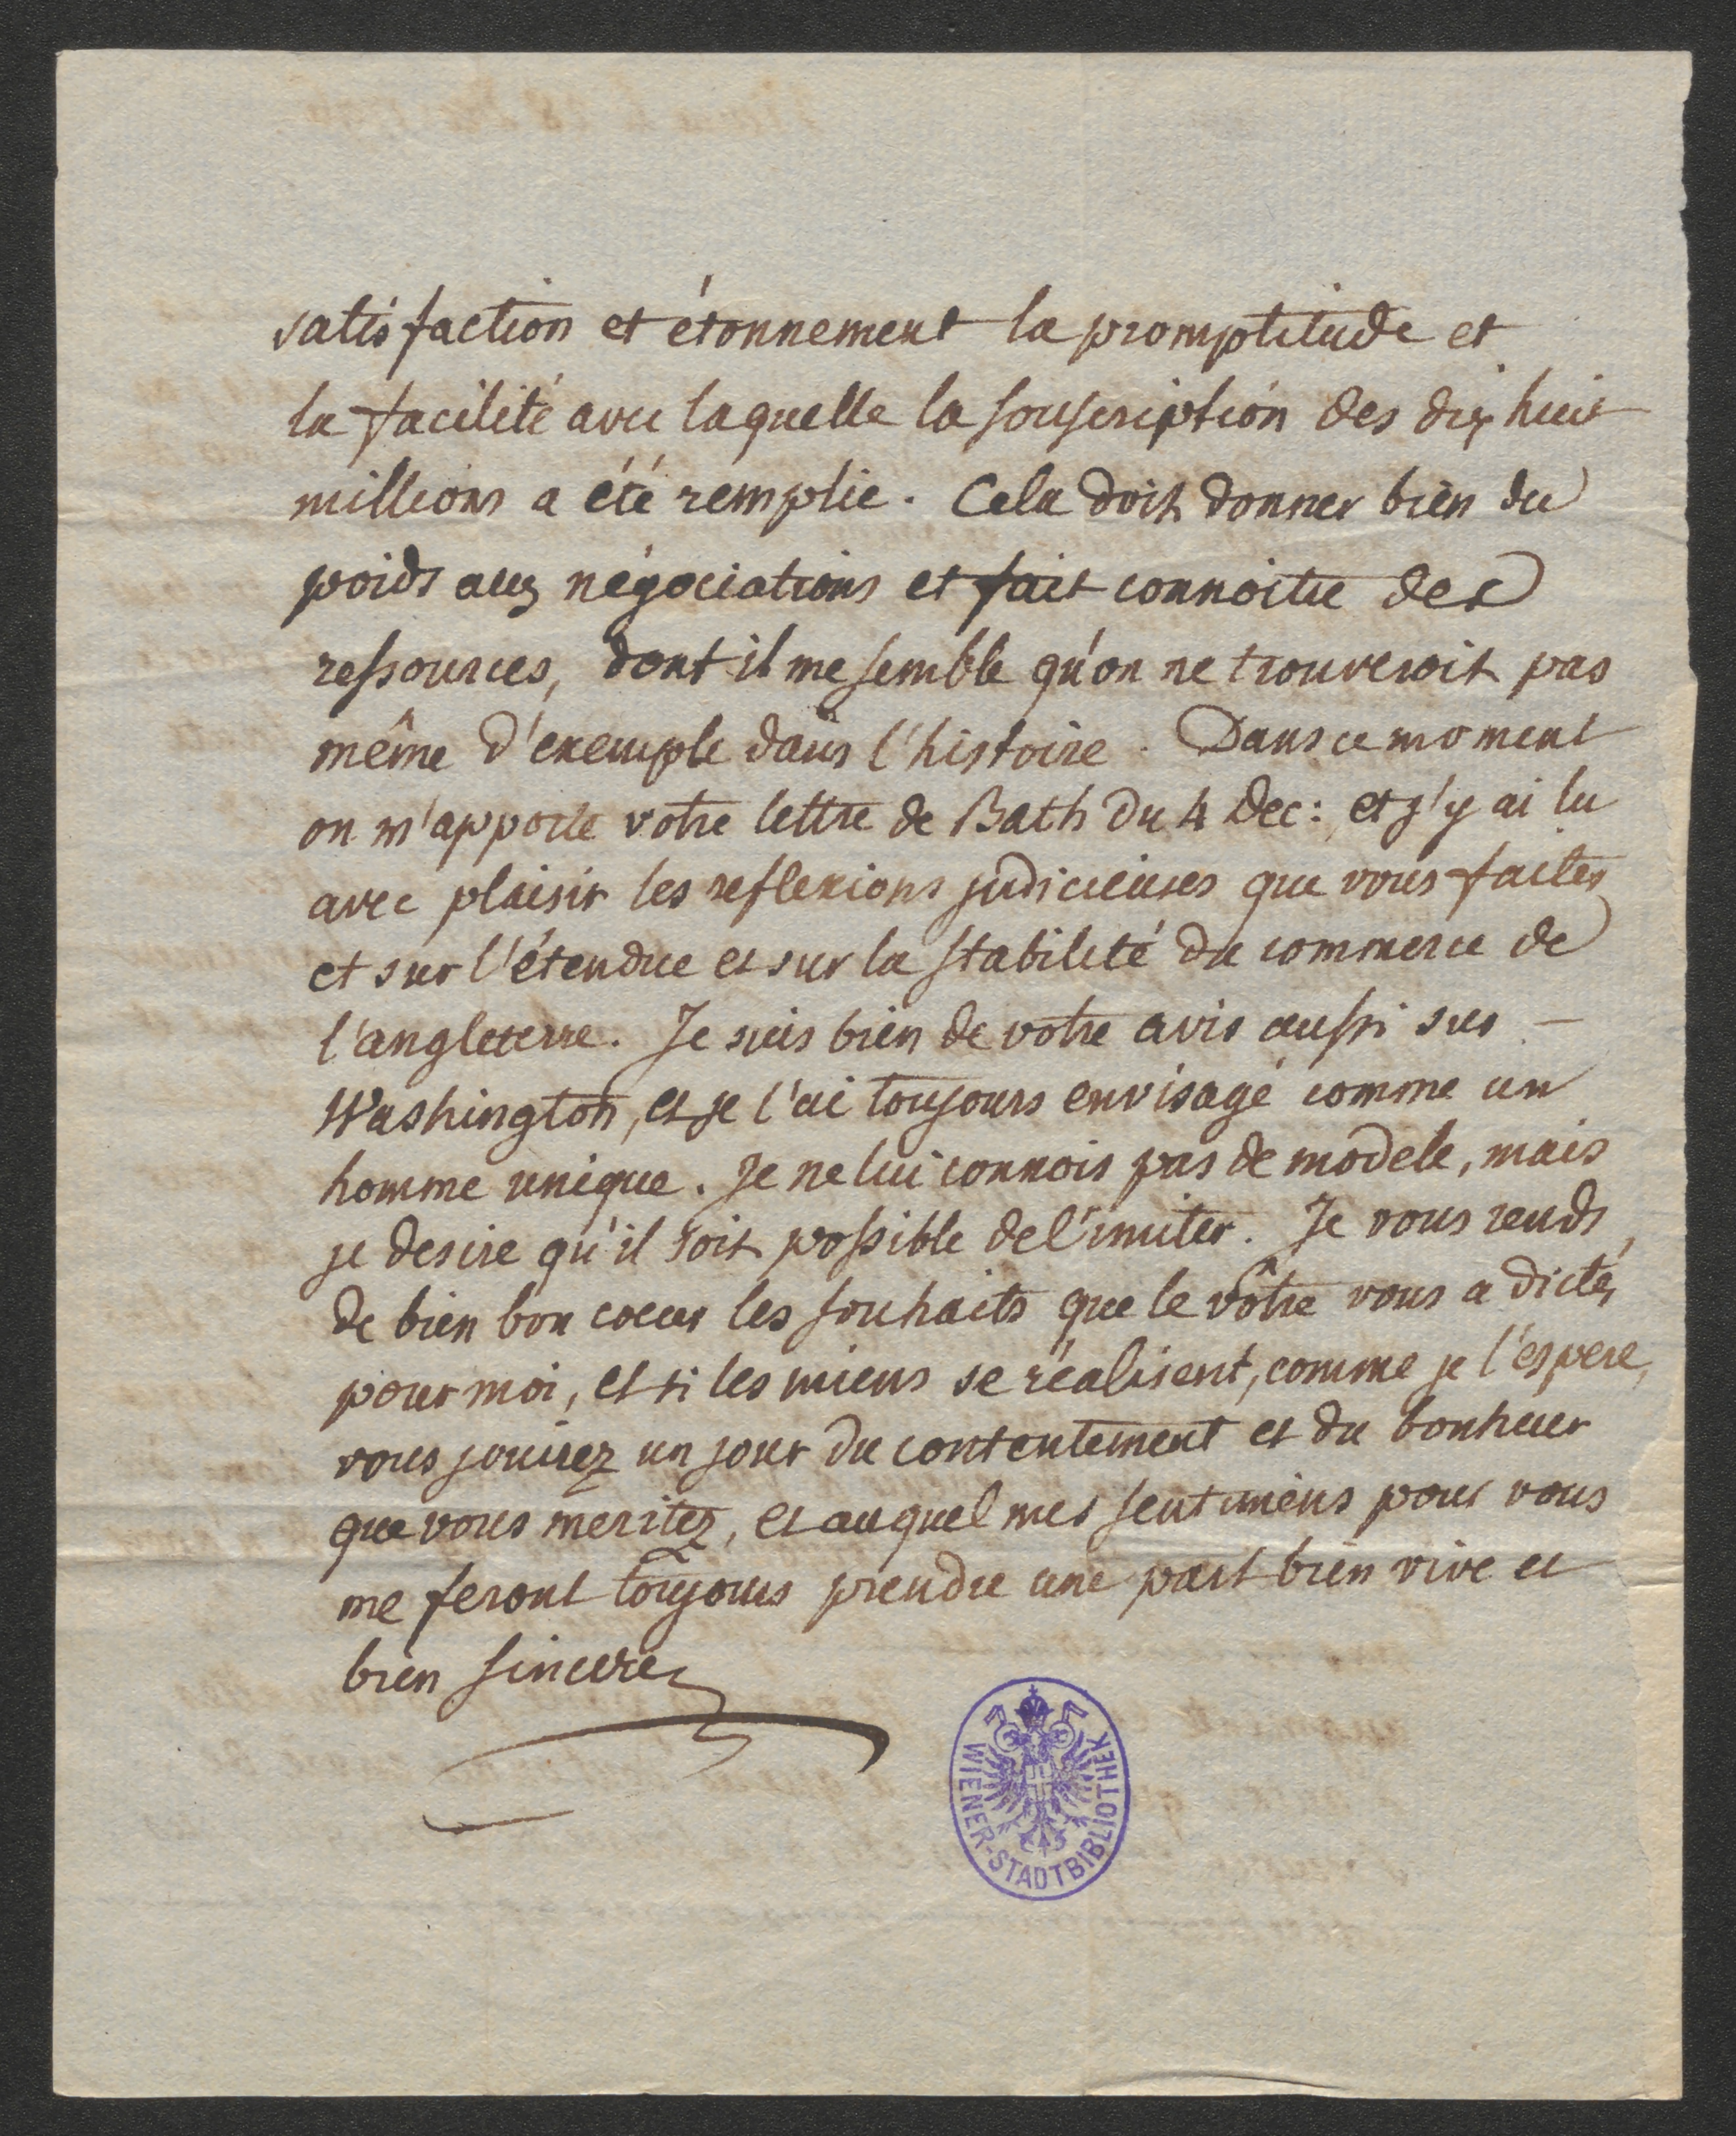 satisfaction et étonnement la promptitude et
la facilité avec laquelle la souscription des dix huit
millions a été remplie. Cela doit donner bien du
poids aux négociations et fait connoitre des
ressources, dont il me semble qu'on ne trouveroit pas
même d'exemple dans l'histoire. Dans ce moment
on m'apporte votre lettre de Bath du 4 Dec: et j'y ai lu
avec plaisir les reflexions judicieuses que vous faites
et sur l'étendue et sur la stabilité du commerce de
l'angleterre. Je suis bien de votre avis aussi sur –
Washington, et je l'ai toujours envisagé comme un
homme unique. Je ne lui connois pas de modele, mais
je desire qu'il soit possible de l'imiter. Je vous rends
de bien bon coeur les souhaits que le vôtre vous a dictés
pour moi, et si les miens se réalisent, comme je l'espere,
vous jouirez un jour du contentement et du bonheur
que vous meritez, et auquel mes sentimens pour vous
me feront toujours prendre une part bien vive et
bien sincere
WIENER-STADTBIBLIOTHEK